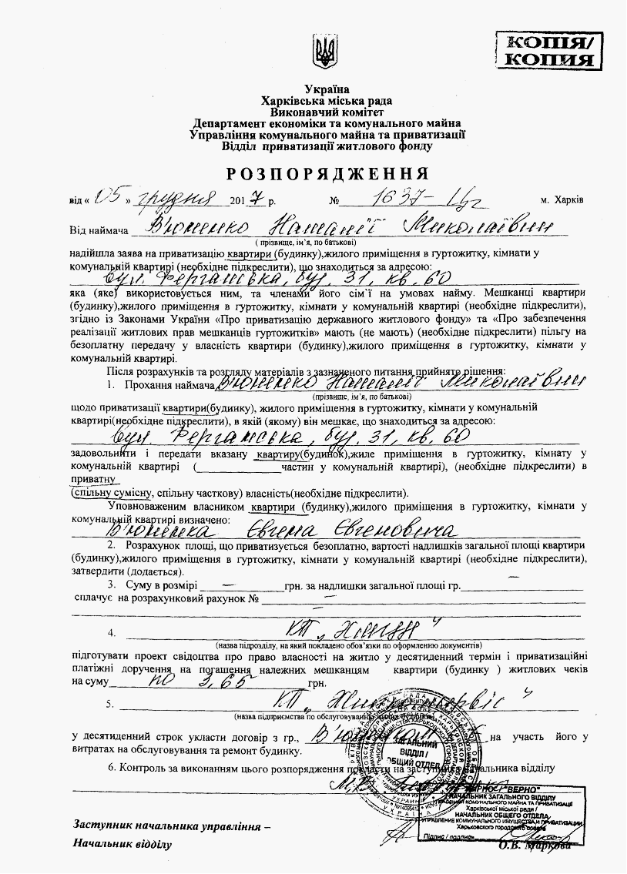 КОПІЯ/
КОПИЯ
Україна
Харківська міська рада
Виконавчий комітет
Департамент економіки та комунального майна
Управління комунального майна та приватизації
Відділ приватизації житлового фонду
РОЗПОРЯДЖЕННЯ
від « 05 » грудня 2017 р. № 1637- м. Харків
Від наймача В'юненко Наталії Миколаївни
( прізвище, ім'я, по батькові)
надійшла заява на приватизацію квартири (будинку),жилого приміщення в гуртожитку, кімнати у
комунальній квартирі (необхідне підкреслити), що знаходиться за адресою:
вул. Ферганська, буд. 31, кв. 60
яка (яке) використовується ним, та членами його сім'ї на умовах найму. Мешканці квартири
(будинку),жилого приміщення в гуртожитку, кімнати у комунальній квартирі (необхідне підкреслити),
згідно із Законами України «Про приватизацію державного житлового фонду» та «Про забезпечення
реалізації житлових прав мешканців гуртожитків» мають (не мають) (необхідне підкреслити) пільгу на
безоплатну передачу у власність квартири (будинку),жилого приміщення в гуртожитку, кімнати у
комунальній квартирі.
Після розрахунків та розгляду матеріалів з зазначеного питання прийнято рішення:
1. Прохання наймача В'юненко Наталії Миколаївни
(прізвище, ім'я, по батькові)
щодо приватизації квартири(будинку), жилого приміщення в гуртожитку, кімнати у комунальній
квартирі(необхідне підкреслити), в якій (якому) він мешкає, що знаходиться за адресою:
вул. Ферганська, буд. 31, кв. 60
задовольнити і передати вказану квартиру(будинок),жиле приміщення в гуртожитку, кімнату у
комунальній квартирі (____________частин у комунальній квартирі), (необхідне підкреслити) в
приватну
(спільну сумісну, спільну часткову) власність(необхідне підкреслити).
Уповноваженим власником квартири (будинку),жилого приміщення в гуртожитку, кімнати у
комунальній квартирі визначено:
В'юненка Євгена Євгеновича
2. Розрахунок площі, що приватизується безоплатно, вартості надлишків загальної площі квартири
(будинку),жилого приміщення в гуртожитку, кімнати у комунальній квартирі (необхідне підкреслити),
затвердити (додається).
3. Суму в розмірі — грн. за надлишки загальної площі гр. —
сплачує на розрахунковий рахунок № —
4. КП
(назва підрозділу, на який покладено обов'язки по оформленню документів)
підготувати проект свідоцтва про право власності на житло у десятиденний термін і приватизаційні
платіжні доручення на погашення належних мешканцям квартири (будинку ) житлових чеків
на суму по 3,65 грн.
5. КП „Жилкомсервіс"
(назва підприємства по обслуговуванню
у десятиденний строк укласти договір з гр. на участь його у
витратах на обслуговування та ремонт будинку.
6. Контроль за виконанням цього розпорядження покласти на заступника начальника відділу
ЗАГАЛЬНИЙ
ВІДДІЛ/
ОБЩИЙ ОТДЕЛ
"ВЕРНО"
НАЧАЛЬНИК ЗАГАЛЬНОГО ВІДДІЛУ
УПРАВЛІННЯ КОМУНАЛЬНОГО МАЙНА ТА ПРИВАТИЗАЦІЇ
Харківської міської ради /
НАЧАЛЬНИК ОБЩЕГО ОТДЕЛА
УПРАВЛЕНИЕ КОММУНАЛЬНОГО ИМУЩЕСТВА И ПРИВАТИЗАЦИИ
Харьковского городского совета
Підпис / подпись
Заступник начальника управління –
Начальник відділу О.В. Маркова